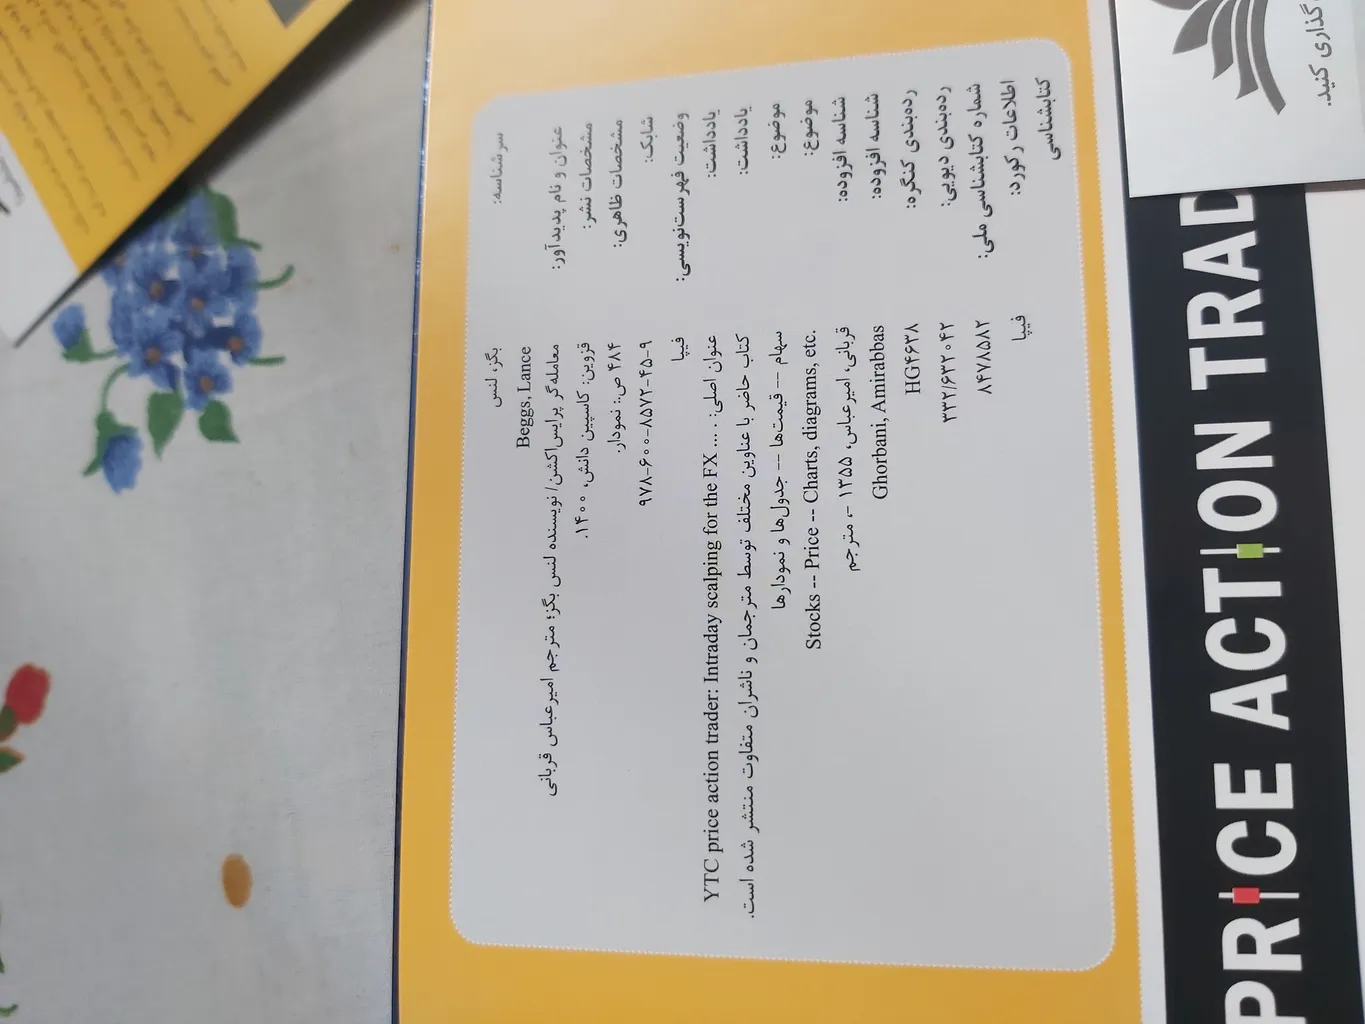 سرشناسه: بگز، لنس
Beggs, Lance
عنوان و نام پدیدآور: معامله‌گر پرایس‌اکشن/ نویسنده لنس بگز؛ مترجم امیرعباس قربانی
مشخصات نشر: قزوین: کاسپین دانش، ۱۴۰۰.
مشخصات ظاهری: ۴۸۴ ص.: نمودار.
شابک: ۹۷۸-۶۰۰-۸۵۷۲-۴۵-۹
وضعیت فهرست‌نویسی: فیپا
یادداشت: عنوان اصلی: . ... YTC price action trader: Intraday scalping for the FX
یادداشت: کتاب حاضر با عناوین مختلف توسط مترجمان و ناشران متفاوت منتشر شده است.
موضوع: سهام -- قیمت‌ها -- جدول‌ها و نمودارها
موضوع: Stocks -- Price -- Charts, diagrams, etc.
شناسه افزوده: قربانی، امیرعباس، ۱۳۵۵ -، مترجم
شناسه افزوده: Ghorbani, Amirabbas
رده‌بندی کنگره: HG۴۶۳۸
رده‌بندی دیویی: ۳۳۲/۶۳۲۰۴۲
شماره کتابشناسی ملی: ۸۴۷۸۵۸۲
اطلاعات رکورد کتابشناسی: فیپا
PRICE ACTION TRAD
گذاری کنید.